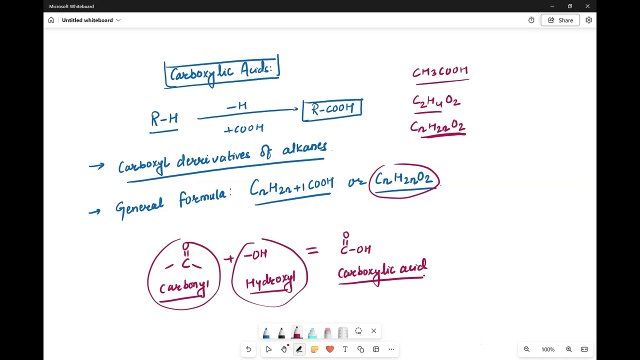 Microsoft Whiteboard
Untitled whiteboard
Share
Carboxylic Acids:
R-H
-H
+COOH
R-COOH
CH3COOH
C2H4O2
CnH2nO2
→ Carboxyl derrivatives of alkanes
→ General formula: CnH2n+1COOH or CnH2nO2
O
-C-
Carbonyl
+
-OH
Hydroxyl
=
O
C-OH
Carboxylic acid
100%